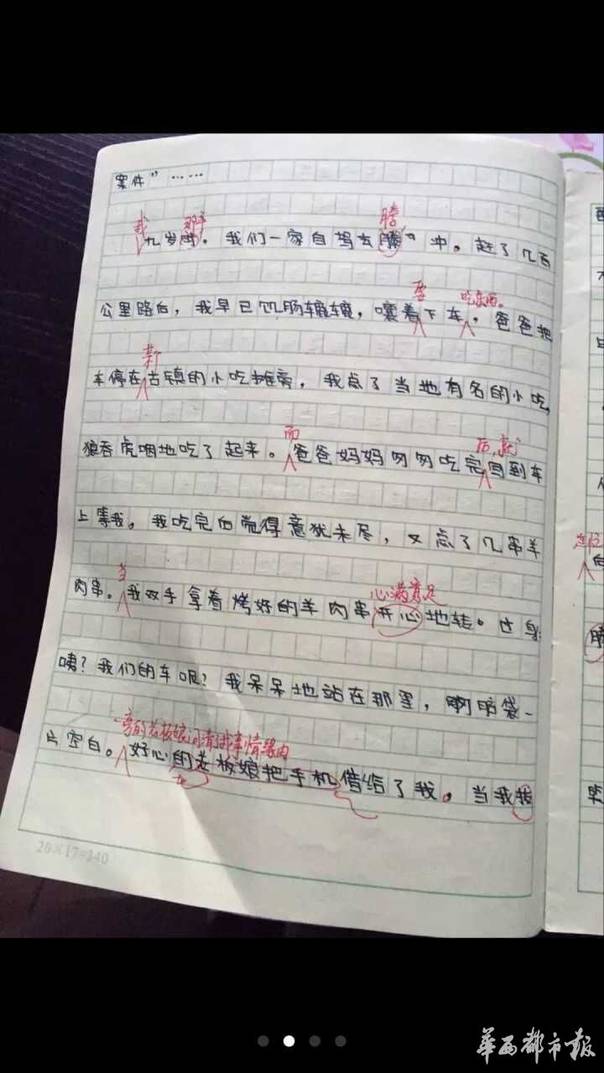 案件”……
我 那年 腾
九岁时。我们一家自驾去腾冲。赶了几百
要 吃东西。
公里路后，我早已饥肠辘辘，嚷着下车。爸爸把
车停在古镇的小吃摊旁，我点了当地有名的小吃，
而 后，就
狼吞虎咽地吃了起来。爸爸妈妈匆匆吃完回到车
上等我。我吃完后觉得意犹未尽，又点了几串羊
当 心满意足
肉串。我双手拿着烤好的羊肉串开心地转过身
咦？我们的车呢？我呆呆地站在那里，脑袋一
旁的老板娘问清我事情缘由
片空白。好心的老板娘把手机借给了我。当我
20×17=340
华西都市报